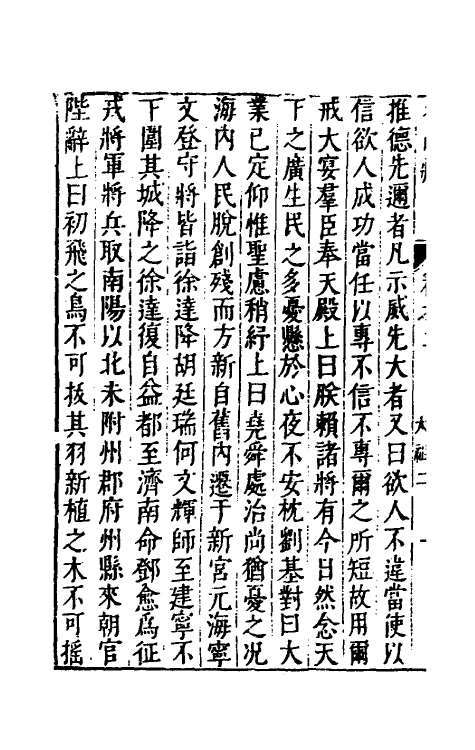 推德先邇者凡示威先大者又曰欲人不違當使以
信欲人成功當任以專不信不專爾之所短故用爾
戒大宴羣臣奉天殿上曰朕賴諸將有今日然念天
下之廣生民之多憂懸於心夜不安枕劉基對曰大
業已定仰惟聖慮稍紓上曰堯舜處治尚猶憂之况
海内人民脫創殘而方新自舊内遷于新宮元海寧
文登守將皆詣徐達降胡廷瑞何文輝師至建寧不
下圍其城降之徐達復自益都至濟南命鄧愈爲征
戎將軍將兵取南陽以北未附州郡府州縣來朝官
陛辭上曰初飛之鳥不可拔其羽新植之木不可搖